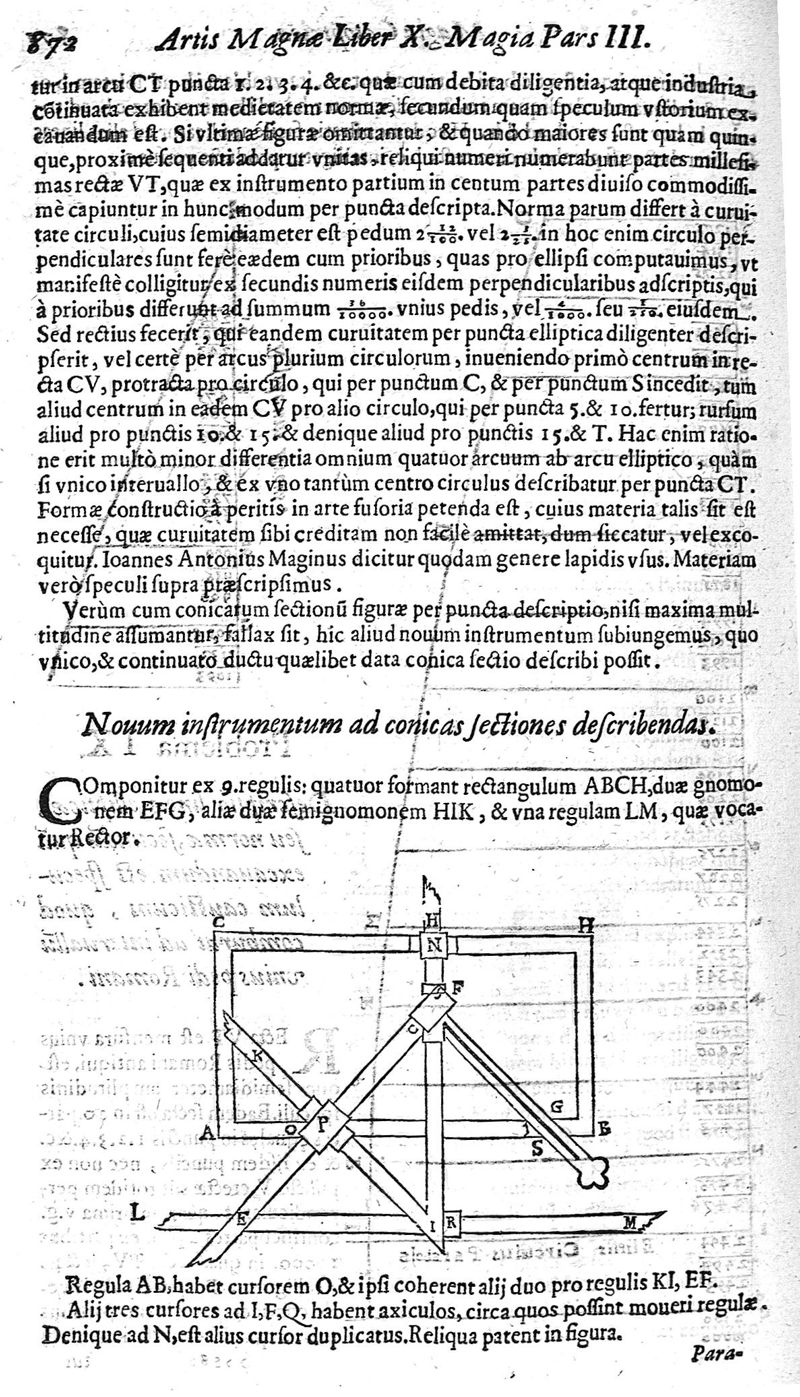 872 Artis Magnæ Liber X. Magia Pars III.
tur in arcu CT puncta 1. 2. 3. 4. &c. quæ cum debita diligentia, atque industria,
cōtinuata exhibent medietatem normæ, secundum quam speculum vstorium ex-
cauandum est. Si vltimæ figuræ omittantur, & quando maiores sunt quàm quin-
que, proximè sequenti addatur vnitas, reliqui numeri numerabunt partes millesi-
mas rectæ VT, quæ ex instrumento partium in centum partes diuiso commodissi-
mè capiuntur in hunc modum per puncta descripta. Norma parum differt à curui-
tate circuli, cuius semidiameter est pedum 2 vel 2 in hoc enim circulo per-
pendiculares sunt ferè eædem cum prioribus, quas pro ellipsi computauimus, vt
manifestè colligitur ex secundis numeris eisdem perpendicularibus adscriptis, qui
à prioribus differunt ad summum vnius pedis, vel seu eiusdem.
Sed rectius fecerit, qui eandem curuitatem per puncta elliptica diligenter descri-
pserit, vel certè per arcus plurium circulorum, inueniendo primò centrum in re-
cta CV, protracta pro circulo, qui per punctum C, & per punctum S incedit, tum
aliud centrum in eadem CV pro alio circulo, qui per puncta 5. & 10. fertur; rursum
aliud pro punctis 10. & 15. & denique aliud pro punctis 15. & T. Hac enim ratio-
ne erit multò minor differentia omnium quatuor arcuum ab arcu elliptico, quàm
si vnico interuallo, & ex vno tantùm centro circulus describatur per puncta CT.
Formæ constructio à peritis in arte fusoria petenda est, cuius materia talis sit est
necesse, quæ curuitatem sibi creditam non facilè amittat, dum siccatur, vel exco-
quitur. Ioannes Antonius Maginus dicitur quodam genere lapidis vsus. Materiam
verò speculi supra præscripsimus.
Verùm cum conicarum sectionū figuræ per puncta descriptio, nisi maxima mul-
titudine assumantur, fallax sit, hic aliud nouum instrumentum subiungemus, quo
vnico, & continuato ductu quælibet data conica sectio describi possit.
Nouum instrumentum ad conicas sectiones describendas.
COmponitur ex 9. regulis: quatuor formant rectangulum ABCH, duæ gnomo-
nem EFG, aliæ duæ semignomonem HIK, & vna regulam LM, quæ voca-
tur Rector.
C H H
N
F
K
G
A O P S B
L E I R M
Regula AB, habet cursorem O, & ipsi coherent alij duo pro regulis KI, EF.
Alij tres cursores ad I, F, Q, habent axiculos, circa quos possint moueri regulæ.
Denique ad N, est alius cursor duplicatus. Reliqua patent in figura.
Para-